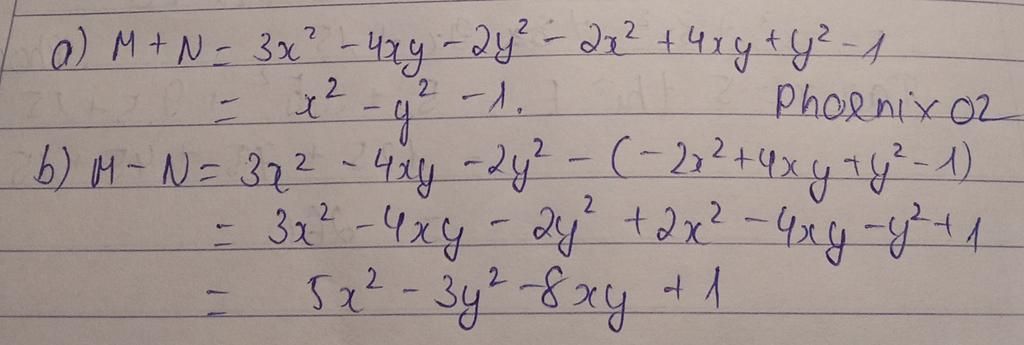 a) M + N = 3x² - 4xy - 2y² - 2x² + 4xy + y² - 1
= x² - y² - 1.
Phoenix 02
b) M - N = 3x² - 4xy - 2y² - (-2x² + 4xy + y² - 1)
= 3x² - 4xy - 2y² + 2x² - 4xy - y² + 1
= 5x² - 3y² - 8xy + 1